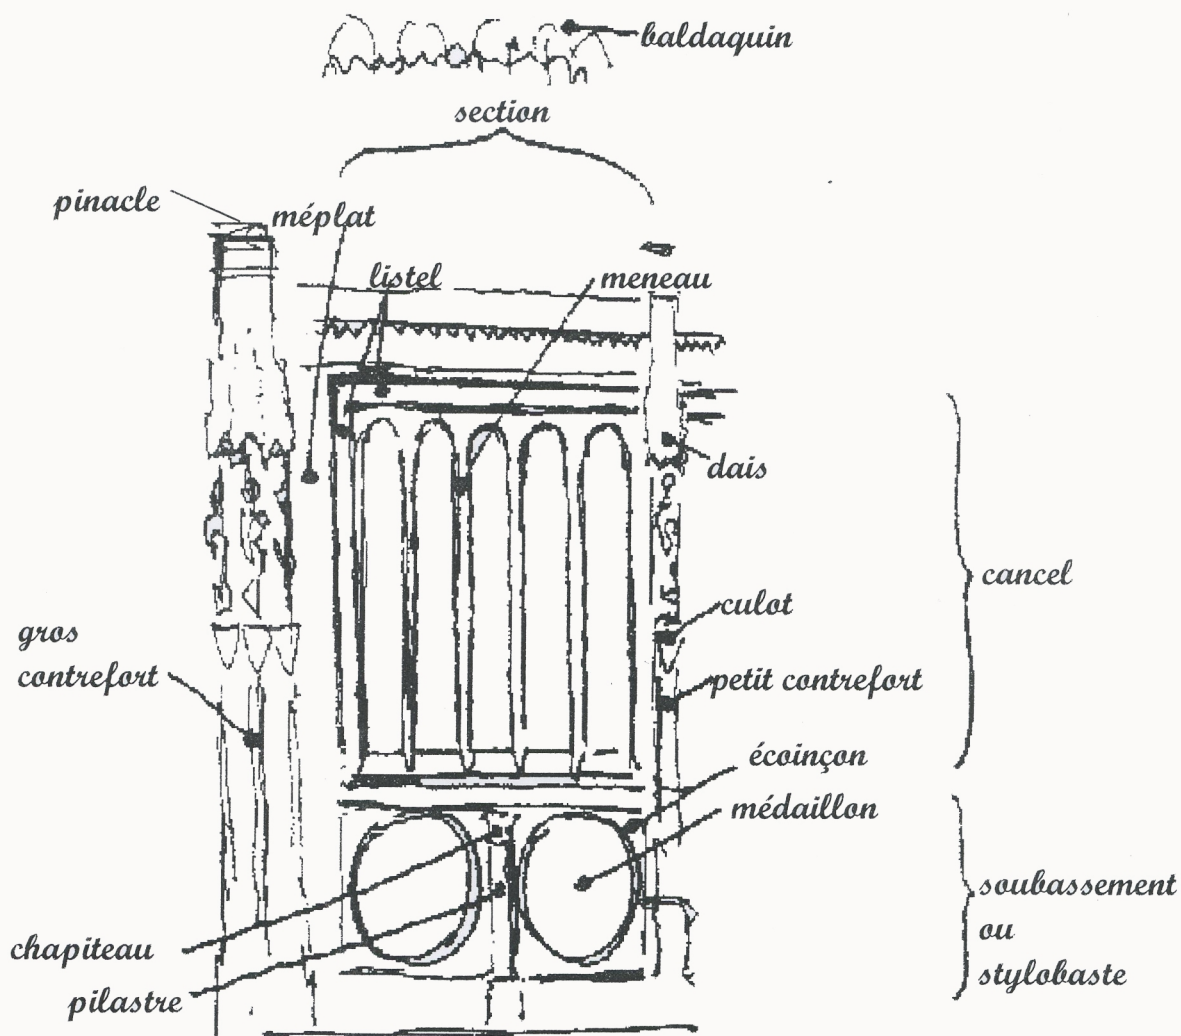 baldaquin
section
pinacle
méplat
listel
meneau
dais
cancel
culot
gros
contrefort
petit contrefort
écoinçon
médaillon
soubassement
ou
stylobaste
chapiteau
pilastre